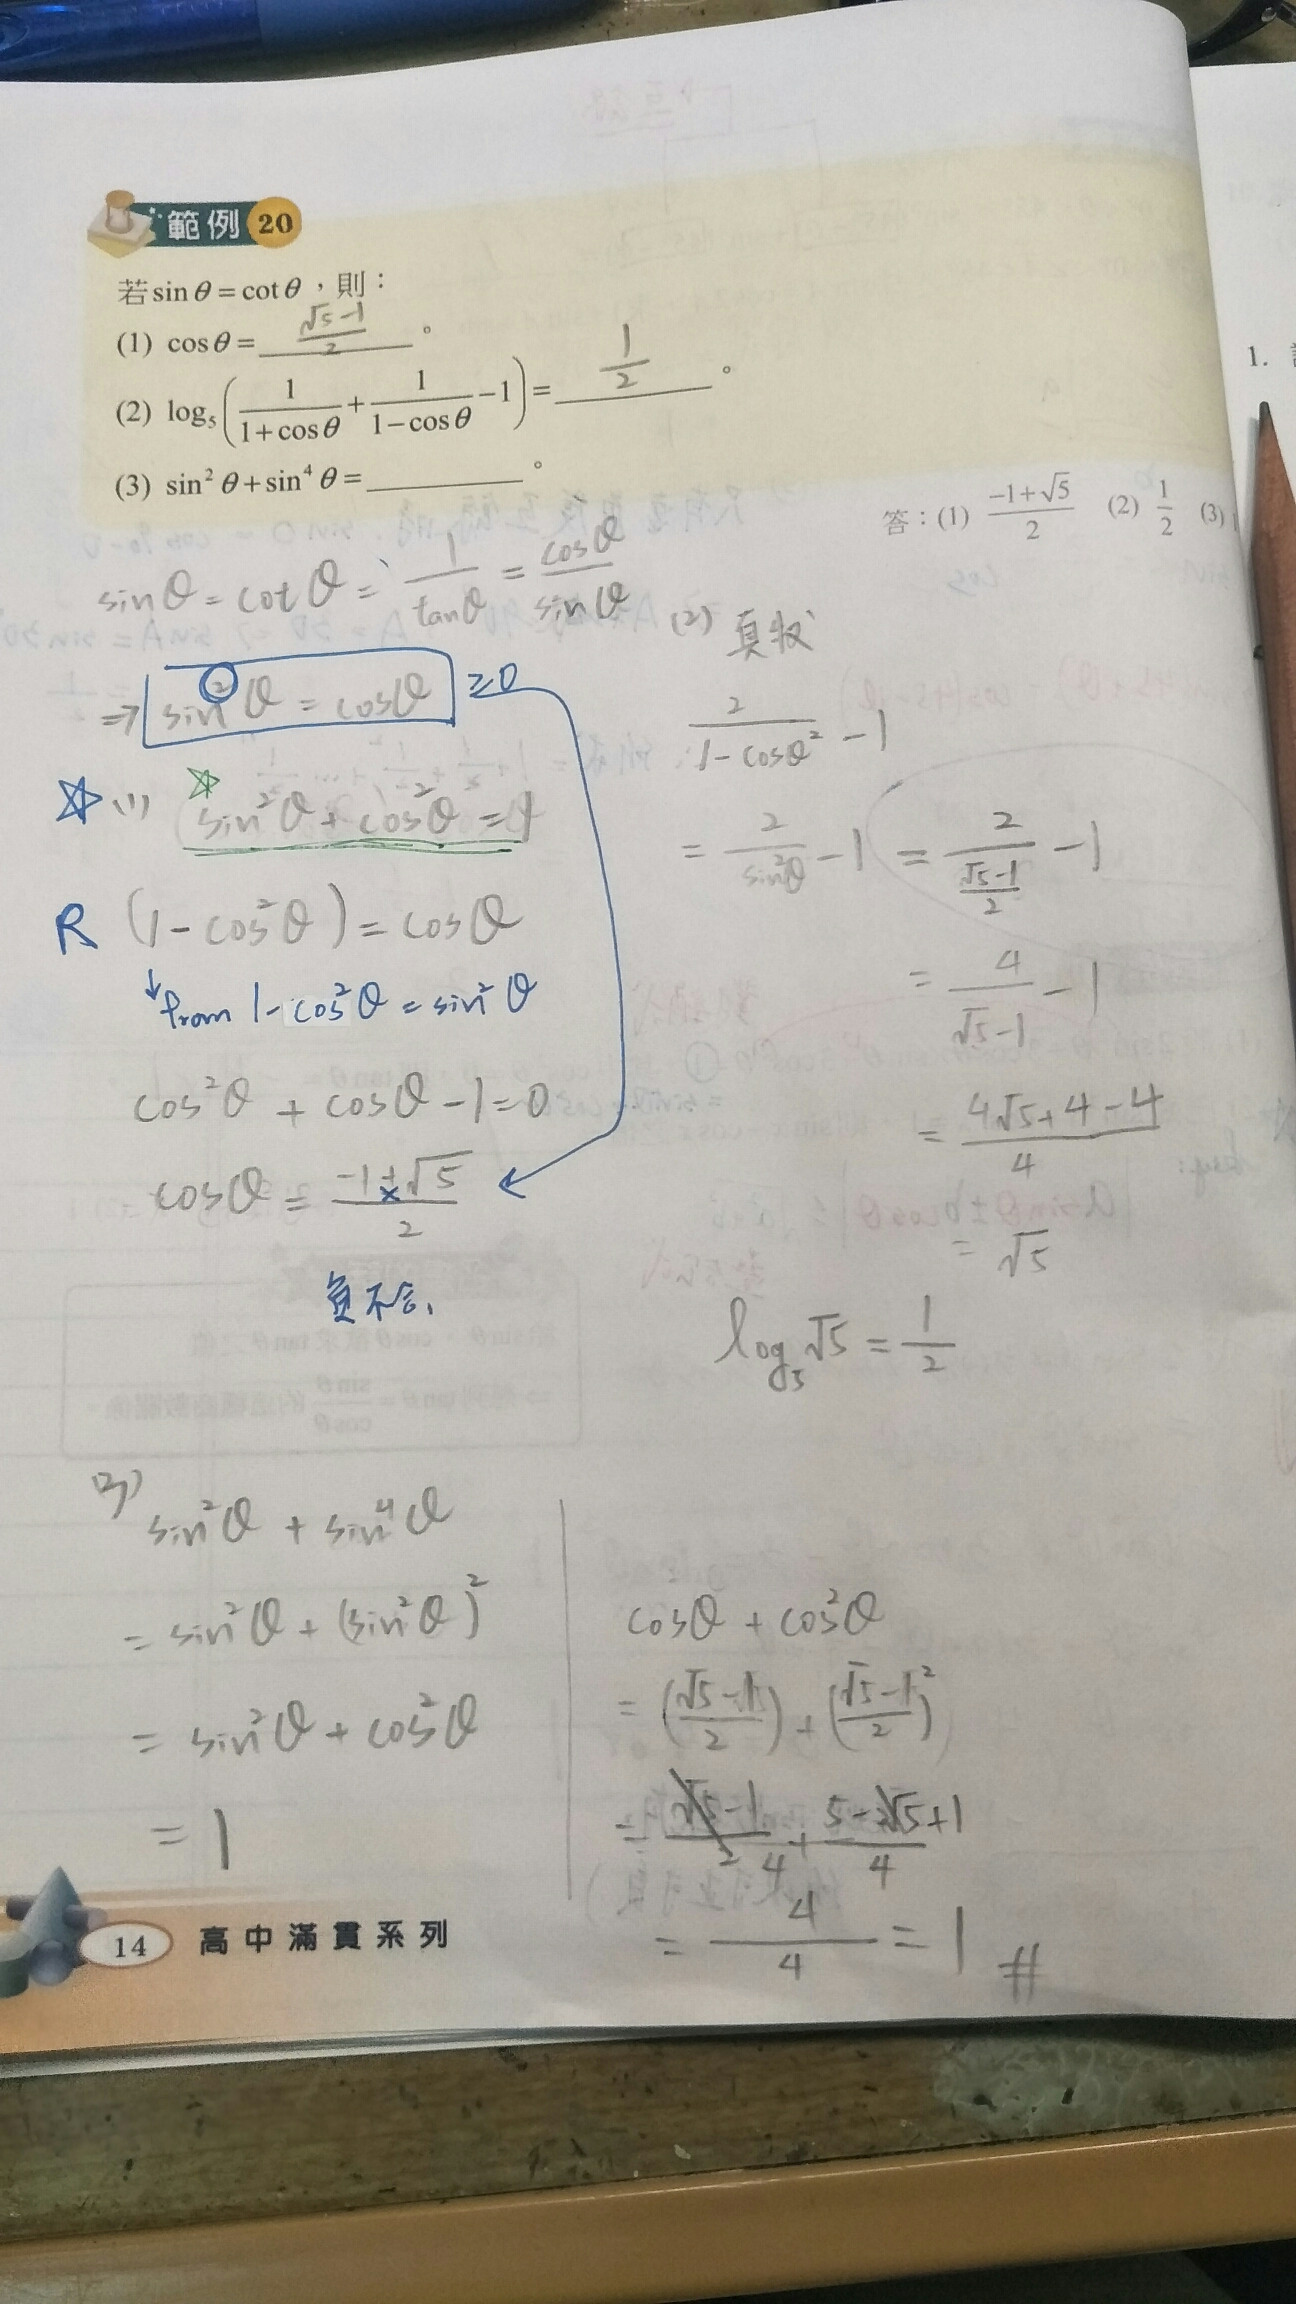 範例 20
若 sin θ = cot θ，則：
(1) cos θ = (√5-1)/2 。
(2) log₅(1/(1+cos θ) + 1/(1-cos θ) - 1) = 1/2 。
(3) sin² θ + sin⁴ θ = ______ 。
答：(1) (-1+√5)/2 (2) 1/2 (3) 1
1.
sinθ = cotθ = 1/tanθ = cosθ/sinθ
⇒ sin²θ = cosθ ≥0
☆ (1) ☆ sin²θ + cos²θ = 1
R (1-cos²θ) = cosθ
↓ from 1-cos²θ = sin²θ
cos²θ + cosθ -1=0
cosθ = (-1±√5)/2
負不合,
(2) 真数
2/(1-cosθ²) -1
= 2/sin²θ -1 = 2/((√5-1)/2) -1
= 4/(√5-1) -1
= (4√5+4-4)/4
= √5
log₅√5 = 1/2
(3)
sin²θ + sin⁴θ
= sin²θ + (sin²θ)²
= sin²θ + cos²θ
= 1
cosθ + cos²θ
= ((√5-1)/2) + ((√5-1)/2)²
= 4 + (5-2√5+1)/4
= 4/4 = 1 #
14 高中滿貫系列